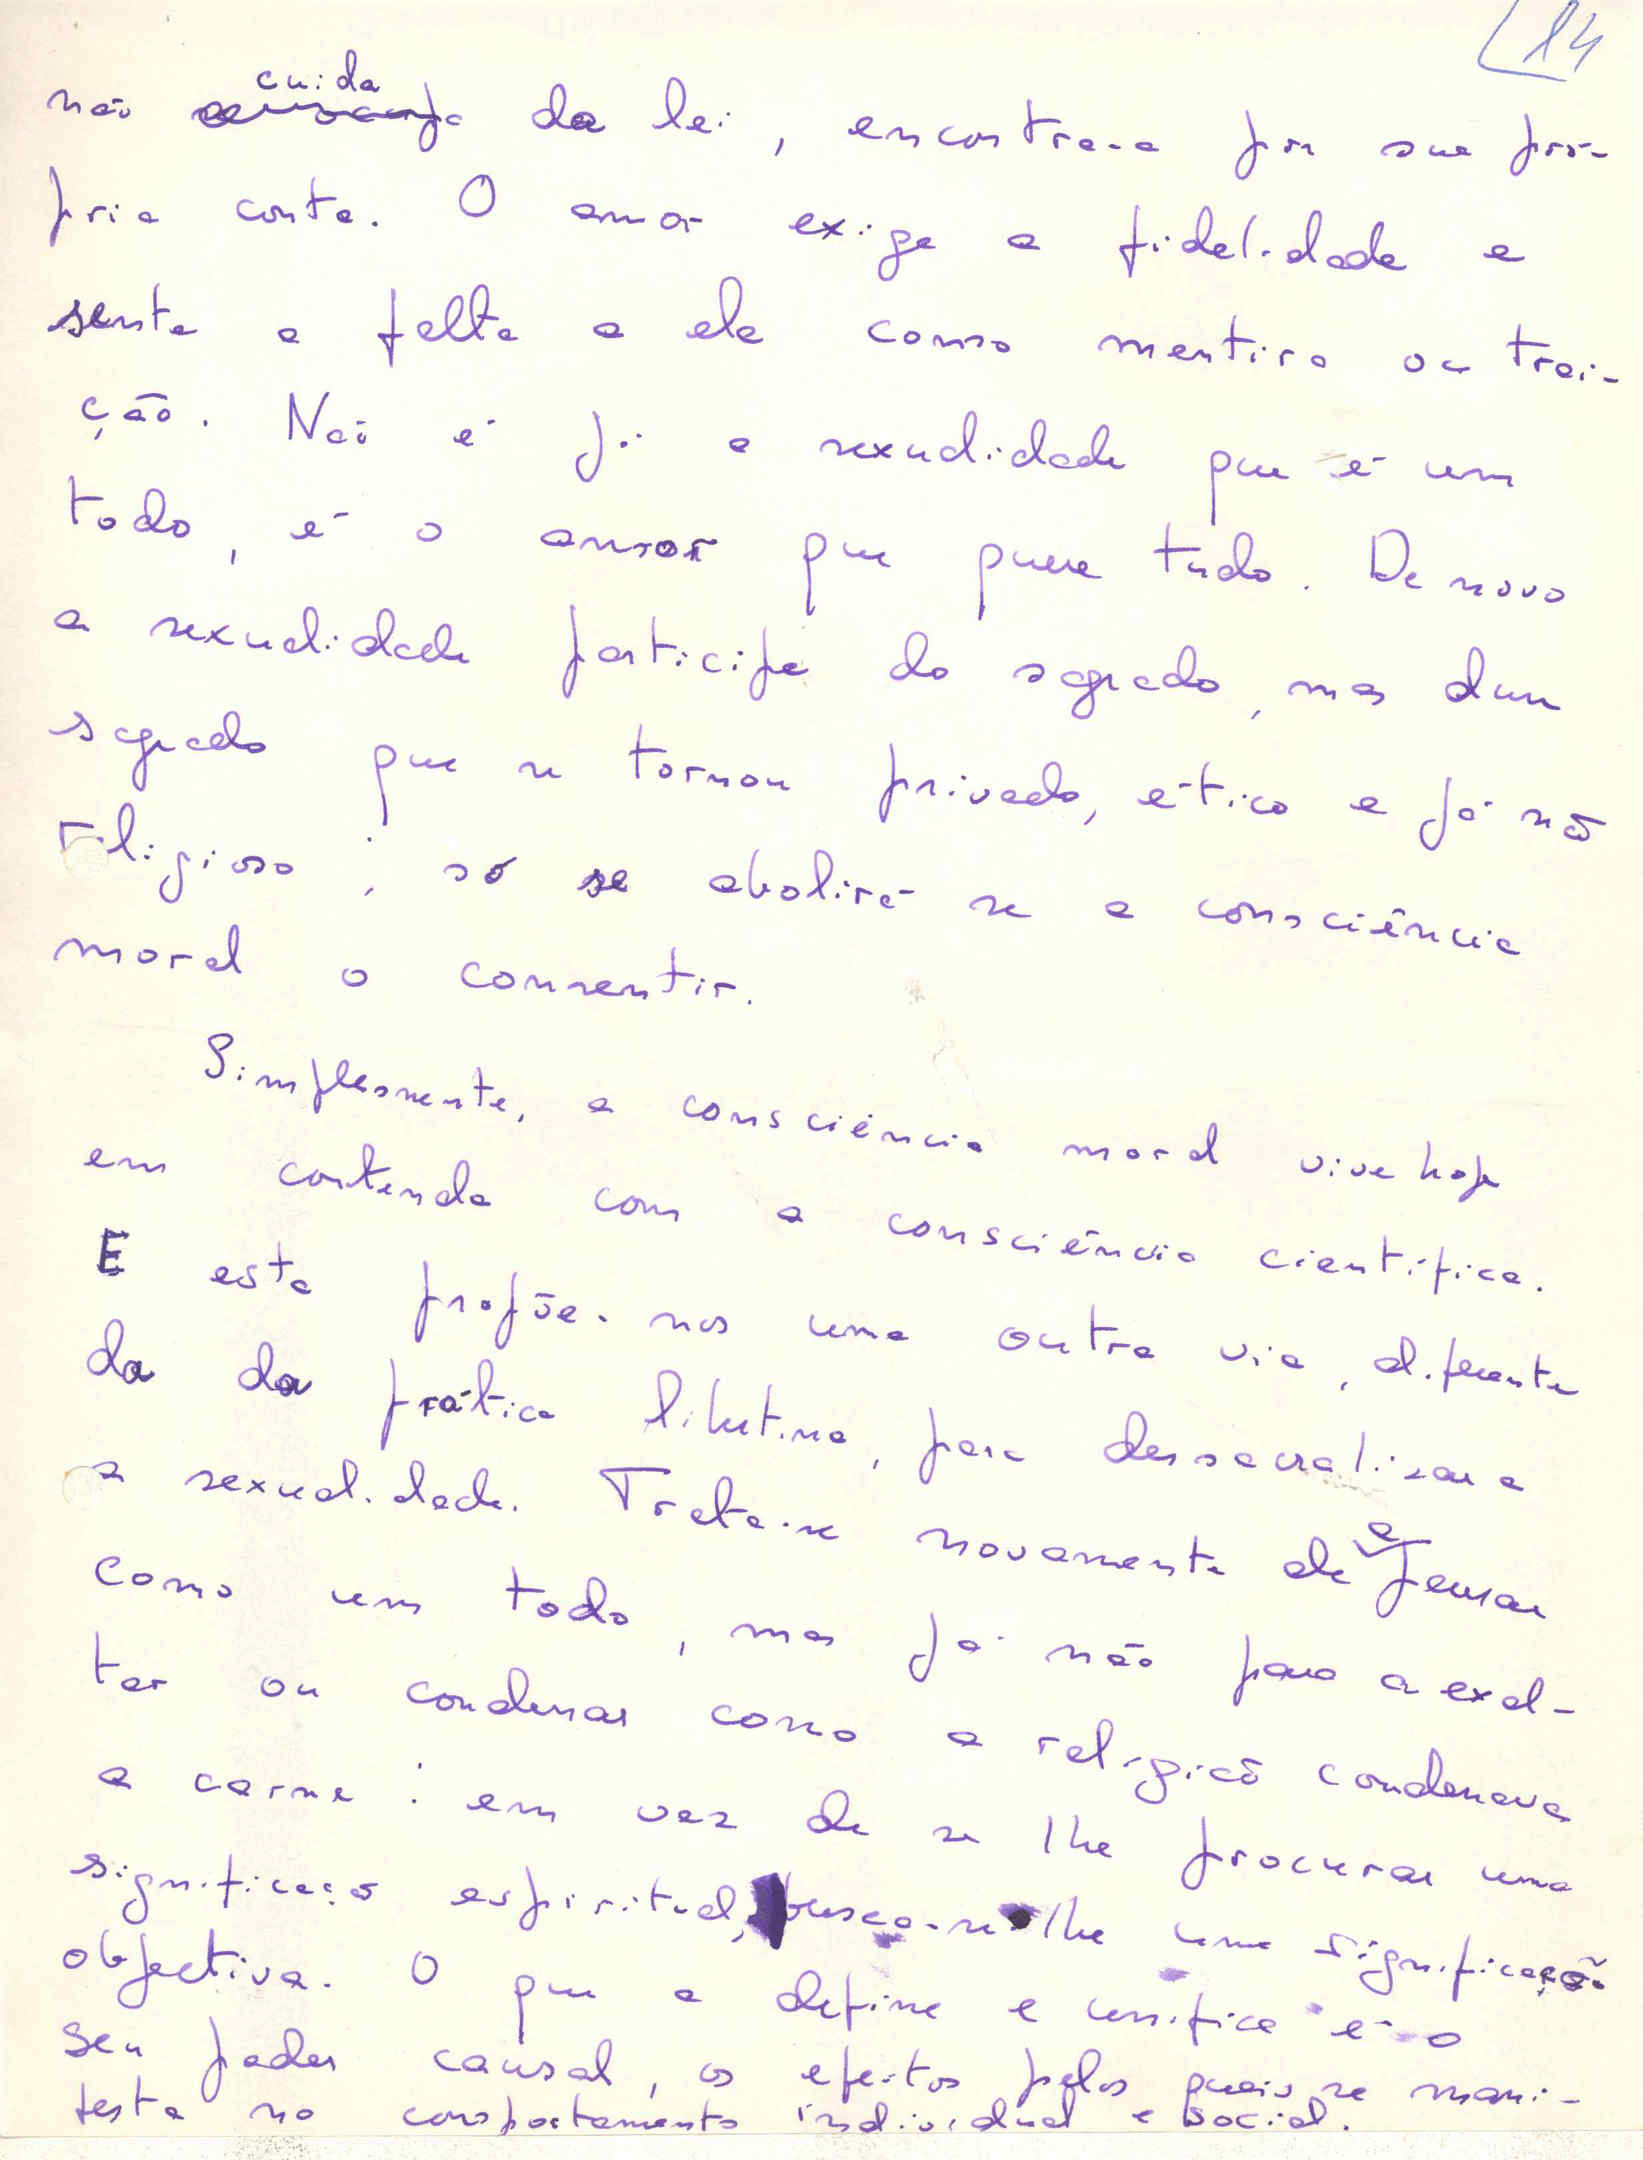 14
cuida
não da lei, encontra-a por sua pró-
pria conta. O amor exige a fidelidade e
sente a falta a ela como mentira ou trai-
ção. Não é já a sexualidade que é um
todo, é o amor que quere tudo. De novo
a sexualidade participa do sagrado, mas dum
sagrado que se tornou privado, ético e já não
religioso; só se abolirá se a consciência
moral o consentir.
Simplesmente, a consciência moral vive hoje
em contenda com a consciência científica.
E esta propõe-nos uma outra via, diferente
da da prática libertina, para dessacralizar a
a sexualidade. Trata-se novamente de a pensar
como um todo, mas já não para a exal-
tar ou condenar como a religião condenava
a carne: em vez de se lhe procurar uma
significação espiritual, busca-se-lhe uma significação
objectiva. O que a define e unifica é o
seu poder causal, os efeitos pelos quais se mani-
festa no comportamento individual e social.